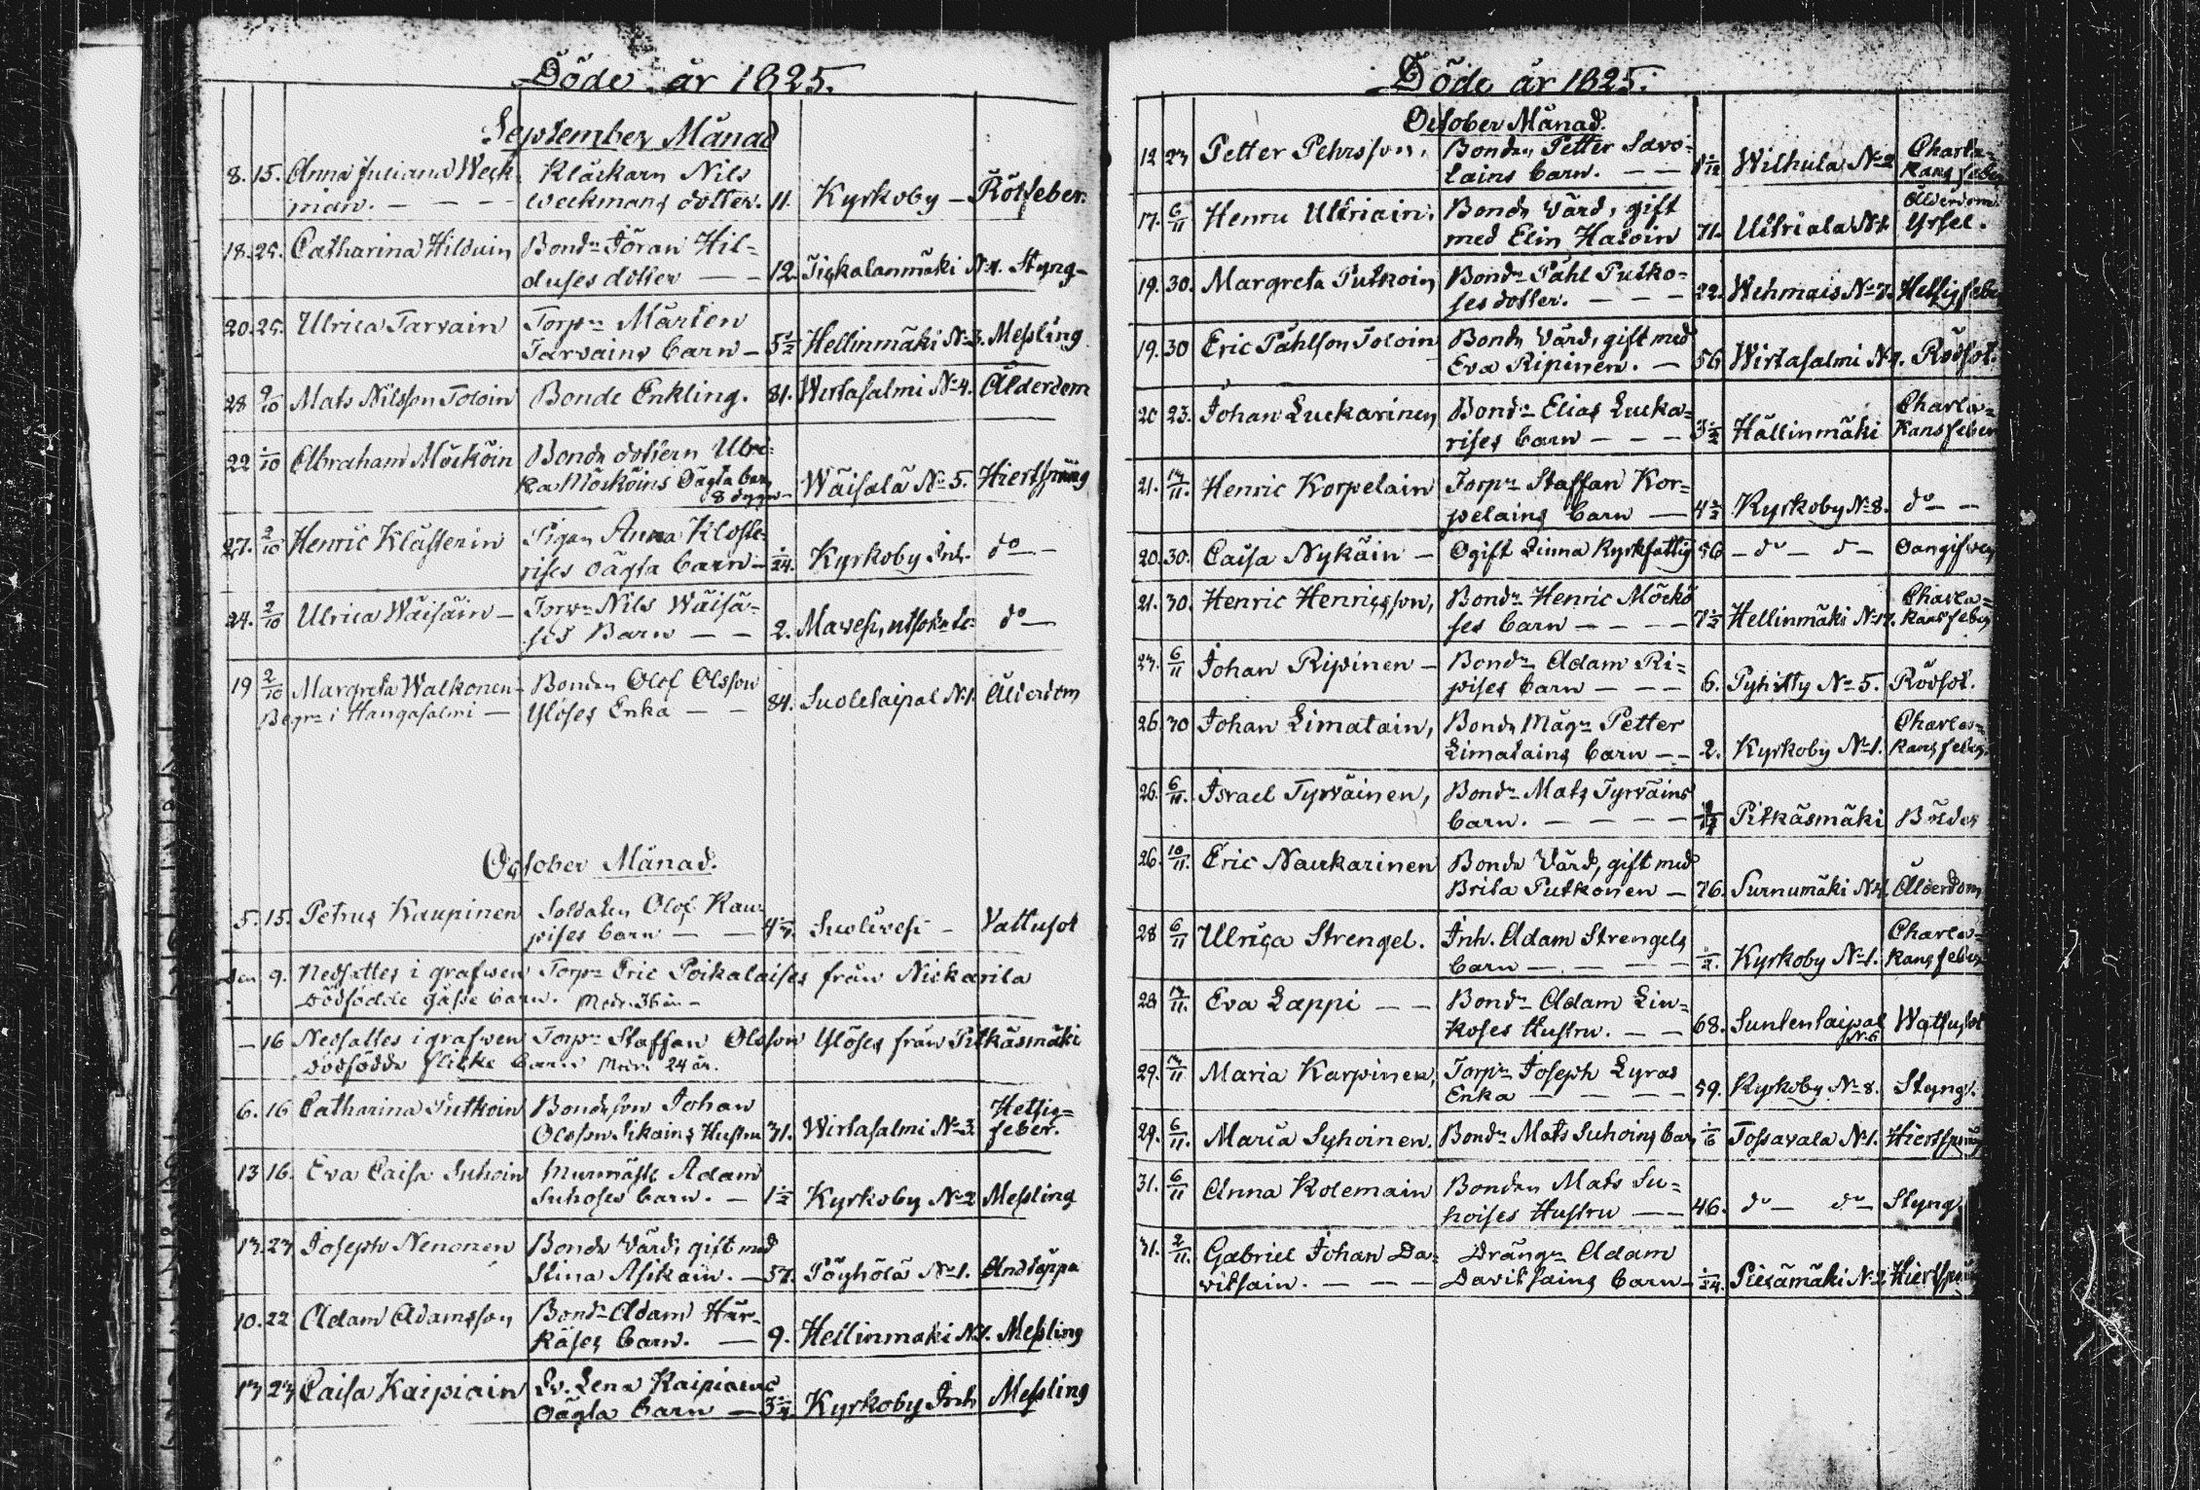 Döde år 1825.
September Månad
8. 15. Anna Juliana Weck- Klåckarn Nils
man. — — — Weckmans dotter. 11. Kyrkoby — Rötfeber.
18. 25. Catharina Hilduin Bondn Jöran Hil=
duses dotter — — 12. Tiskalanmäki No 4. Styng—
20. 25. Ulrica Tarvain Torpn Mårten
Tarvains barn — 5½ Hellinmäki No 3. Messling
28 9/10 Mats Nilsson Toloin Bonde Enkling. 81. Wirtasalmi No 4. Ålderdom
22 1/10 Abraham Möcköin Bonde dottern Ulri=
ka Möcköins Oägta barn
8 dygn— Wäisälä No 5. Hiertsprång
27. 2/10 Henric Klåsterin Pigan Anna Kloste=
rises oägta barn — 1/24. Kyrkoby Inh. do —
24. 2/10 Ulrica Wäisäin — Torpn Nils Wäisä=
ses Barn — — 2. Mavesi, do —
19 2/10 Margreta Walkonen Bonden Olof Olsson
Begrn i Hangasalmi — Ylöses Enka — — 84. Suoletaipal No 1. Ålderdom
October Månad.
5. 15. Petrus Kaupinen Soldaten Olof Kau-
pises barn — — Suolivesi — Vattusot
den 9. Nedsattes i grafwen Torpn Eric Poikalaises från Nickarila
dödfödde gåsse barn. Modr. 36 år —
— 16 Nedsattes i grafwen Torpn Staffan Olsson Ylöses från Pitkäsmäki
dödfödda flicke barn Modr. 24 år.
6. 16 Catharina Putkoin Bondeson Johan Hetsig=
Olsson Sikains Hustru 31. Wirtasalmi No 3. feber.
13 16. Eva Caisa Suhoin Murmäst. Adam
Suhoses barn. — 1½ Kyrkoby No 2 Messling
17. 23 Joseph Nenonen Bonde Värd, gift med
Stina Asikain. — 57. Pöyhölä No 1. Andtäppa
10. 22 Adam Adamsson Bondn Adam Här-
käses barn. — 9. Hellinmäki No 1. Messling
17 23 Caisa Kaipiain Lena Kaipiaises
Oägta barn — Kyrkoby Inh. Messling
Döde år 1825.
October Månad.
12 23 Petter Pehrsson, Bonden Petter Savo= Charla=
lains barn. — — Wilhula No 2 kans feber
17. 6/11 Henric Utriain, Bonde Värd, gift Ålderdom
med Elin Hatoin 71. Uitriala No 1. Yrsel.
19. 30. Margreta Putkoin Bondn Påhl Putko=
ses dotter. — — — 22. Wehmais No 7. Hetsig feber
19. 30 Eric Påhlson Toloin Bonde Värd, gift med
Eva Ripinen. — 56 Wirtasalmi No 4. Rödsot.
20 23. Johan Luckarinen Bondn Elias Lucka= Charla=
rises barn — — — 3½ Hällinmäki kans feber
21. 13/11. Henric Korpelain Torpn Staffan Kor=
pelains barn — 4½ Kyrkoby No 8. do — —
20. 30. Caisa Nykäin — Ogift Qinna Kyrkfattig 56 — do — do — Oangifven
21. 30. Henric Henricsson, Bondn Henric Möckö= Charla=
ses barn — — — — 7½ Hellinmäki No 17. kans feber
23. 6/11 Johan Ripinen — Bondn Adam Ri=
pises barn — — — 6. Pyhitty No 5. Rödsot.
26. 30 Johan Limatain, Bonde Mågn Petter Charla=
Limatains barn — — 2. Kyrkoby No 1. kans feber
26. 6/11. Israel Tyrväinen, Bondn Mats Tyrväins
barn. — — — — Pitkäsmäki Bölder
26. 10/11. Eric Naukarinen Bonde Värd, gift med
Brita Putkonen — 76. Surnumäki No 4. Ålderdom
28 6/11 Ulrica Strengel. Inh. Adam Strengels Charla=
barn — — — — ½. Kyrkoby No 1. kans feber
28 13/11. Eva Lappi — — Bondn Adam Lin=
koses Hustru. — — 68. Suntentaipal Wattusot
No 6
29. 13/11 Maria Karpinen, Torpn Joseph Lyras
Enka — — — — 59. Kyrkoby No 8. Styng.
29. 6/11. Maria Syhoinen. Bondn Mats Suhoins barn 1/6 Tossavala No 1. Hiertsprång
31. 6/11 Anna Kolemain Bonden Mats Su=
hoises Hustru — — 46. do — do — Styng.
31. 2/11. Gabriel Johan Da= Drängn Adam
vitsain. — — — Davitsains barn — 1/24. Pieksämäki No 2 Hiertsprång